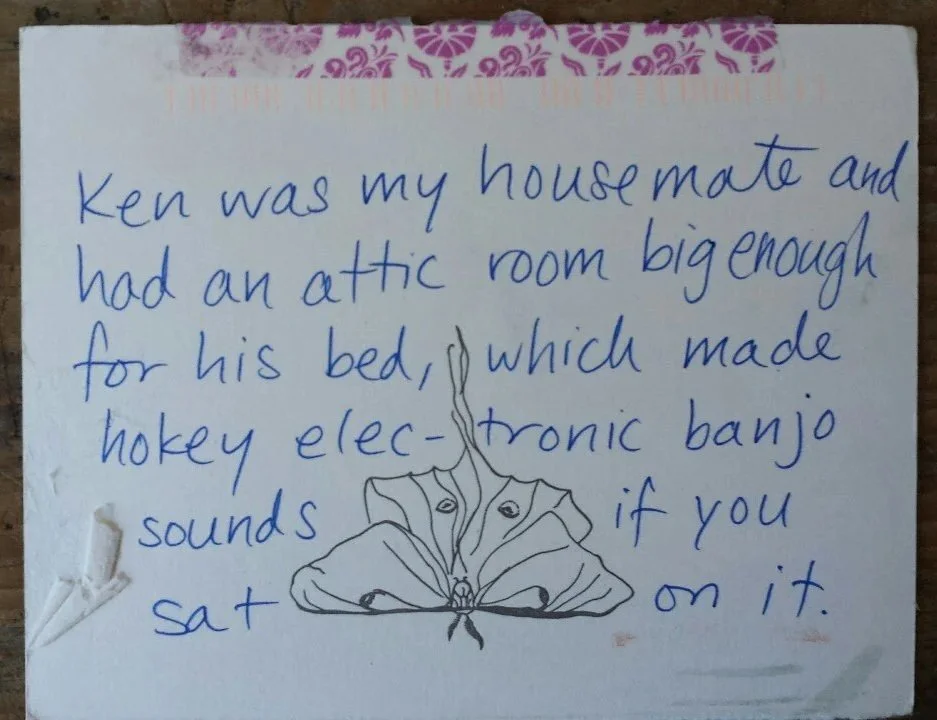 Ken was my housemate and
had an attic room big enough
for his bed, which made
hokey elec-tronic banjo
sounds if you
sat on it.